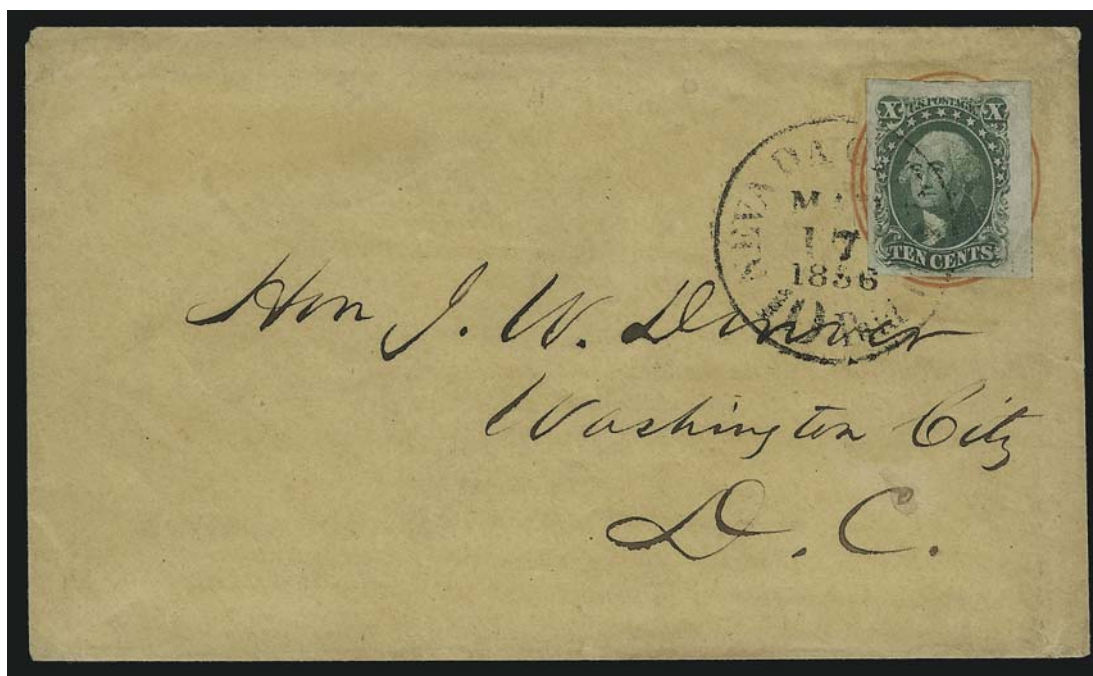 X U.S. POSTAGE X
TEN CENTS
NEVADA C
17
1856
Hon J. W. Denver
Washington City
D. C.